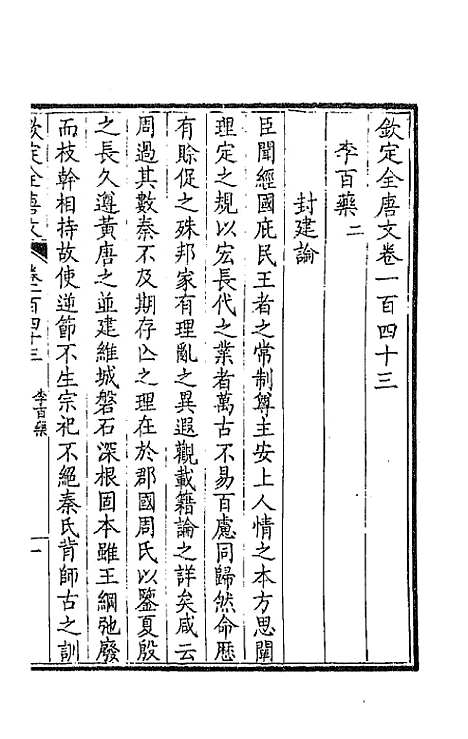 欽定全唐文卷一百四十三
李百藥二
封建論
臣聞經國庇民王者之常制尊主安上人情之本方思闡
理定之規以宏長代之業者萬古不易百慮同歸然命歷
有賒促之殊邦家有理亂之異遐觀載籍論之詳矣咸云
周過其數秦不及期存亡之理在於郡國周氏以鑒夏殷
之長久遵黃唐之並建維城磐石深根固本雖王綱弛廢
而枝幹相持故使逆節不生宗祀不絕秦氏背師古之訓
欽定全唐文 卷一百四十三 李百藥 一